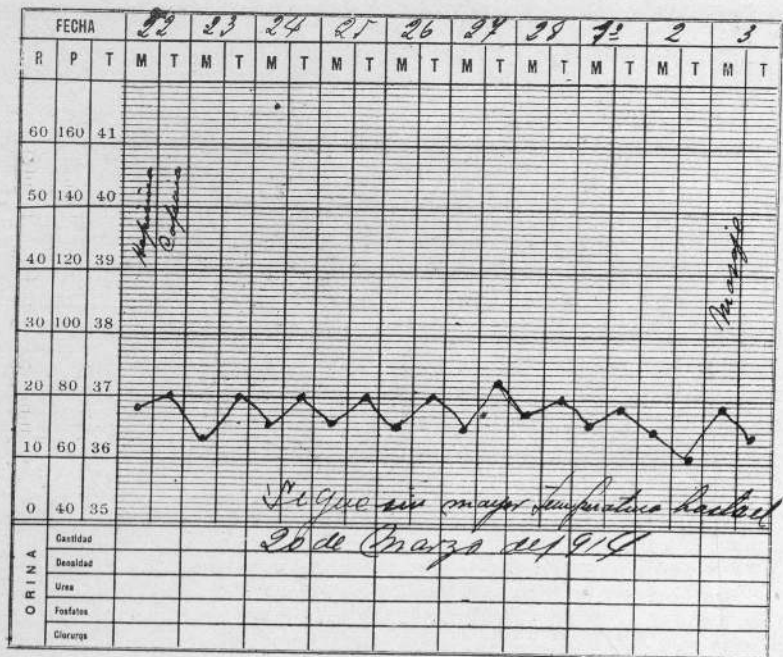 FECHA 22 23 24 25 26 27 28 1º 2 3
R P T M T M T M T M T M T M T M T M T M T M T
60 160 41
50 140 40
40 120 39
30 100 38
20 80 37
10 60 36
0 40 35
Cafeina
Masaje
Sigue sin mayor temperatura hasta el
20 de Marzo de 1914
ORINA
Cantidad
Densidad
Urea
Fosfatos
Cloruros